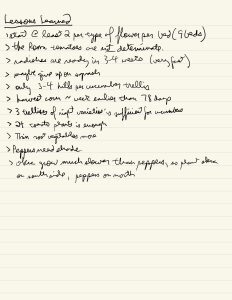 Lessons Learned
> start @ least 2 per type of flower per bed (9 beds)
> the Roma tomatoes are not determinate.
> radishes are ready in 3-4 weeks (very fast)
> maybe give up on squash
> only 3-4 hills per cucumber trellis
> harvest corn ~ week earlier than 78 days
> 3 trellises of right varieties is sufficient for cucumbers
> 24 tomato plants is enough
> Thin root vegetables more
> Peppers need shade
> okra grow much slower than peppers, so plant okra
on south side, peppers on north